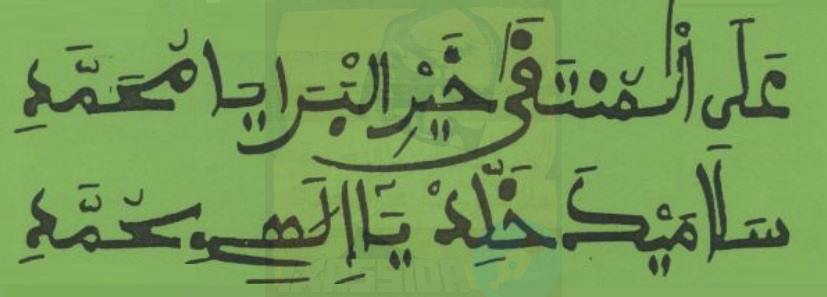 عَلَى الْمُنْتَقَى خَيْرِ الْبَرَايَا مُحَمَّدِ
سَلَامَيْكَ خَلِّدْ يَا إِلَهِي مُحَمَّدِ